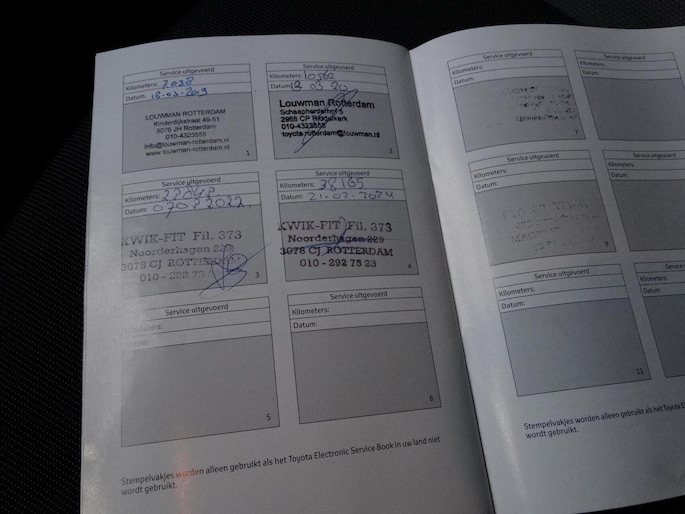 Service uitgevoerd
Kilometers: 7038
Datum: 18-03-2019
LOUWMAN ROTTERDAM
Kinderdijkstraat 49-51
3076 JH Rotterdam
010-4323555
info@louwman-rotterdam.nl
www.louwman-rotterdam.nl
1
Service uitgevoerd
Kilometers: 10562
Datum: 13 03 20
Louwman Rotterdam
Schaapherderhof 5
2988 CP Ridderkerk
010-4323555
toyota.rotterdam@louwman.nl
2
Service uitgevoerd
Kilometers:
Datum: 2022
KWIK-FIT Fil. 373
Noorderhagen 229
3078 CJ ROTTERDAM
010 - 292 75
3
Service uitgevoerd
Kilometers: 38165
Datum: 21-02-2024
KWIK-FIT Fil. 373
Noorderhagen 229
3078 CJ ROTTERDAM
010 - 292 75 23
4
Service uitgevoerd
Kilometers:
Datum:
5
Service uitgevoerd
Kilometers:
Datum:
6
Stempelvakjes worden alleen gebruikt als het Toyota Electronic Service Book in uw land niet
wordt gebruikt.
Service uitgevoerd
Kilometers:
Datum:
7
Service
Kilometers:
Datum:
Service uitgevoerd
Kilometers:
Datum:
9
Kilometers:
Datum:
Service uitgevoerd
Kilometers:
Datum:
11
Kilometers:
Datum:
Stempelvakjes worden alleen gebruikt als het Toyota
wordt gebruikt.